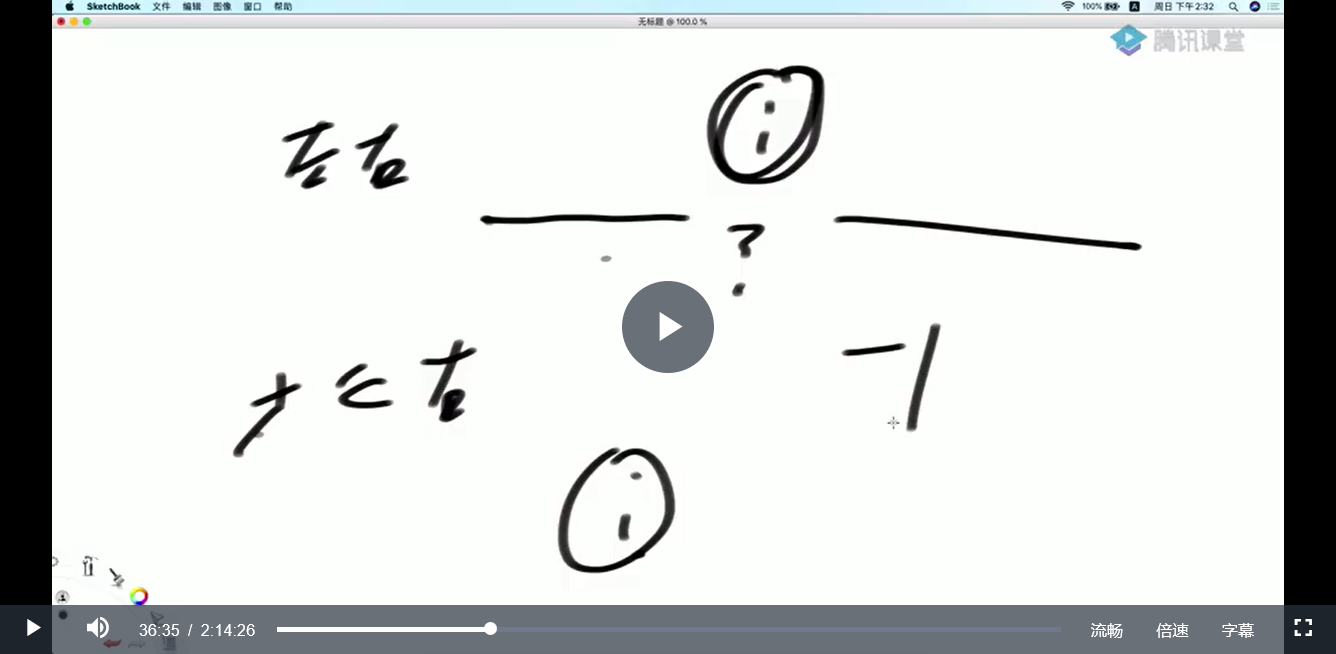 SketchBook 文件 编辑 图像 窗口 帮助 100% A 周日 下午2:32
无标题 @ 100.0 %
腾讯课堂
i
?
-1
i
36:35 / 2:14:26 流畅 倍速 字幕